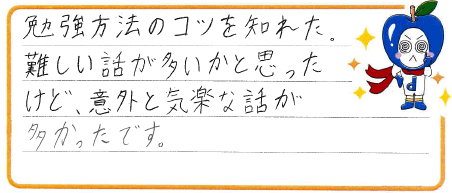 勉強方法のコツを知れた。
難しい話が多いかと思った
けど、意外と気楽な話が
多かったです。
d